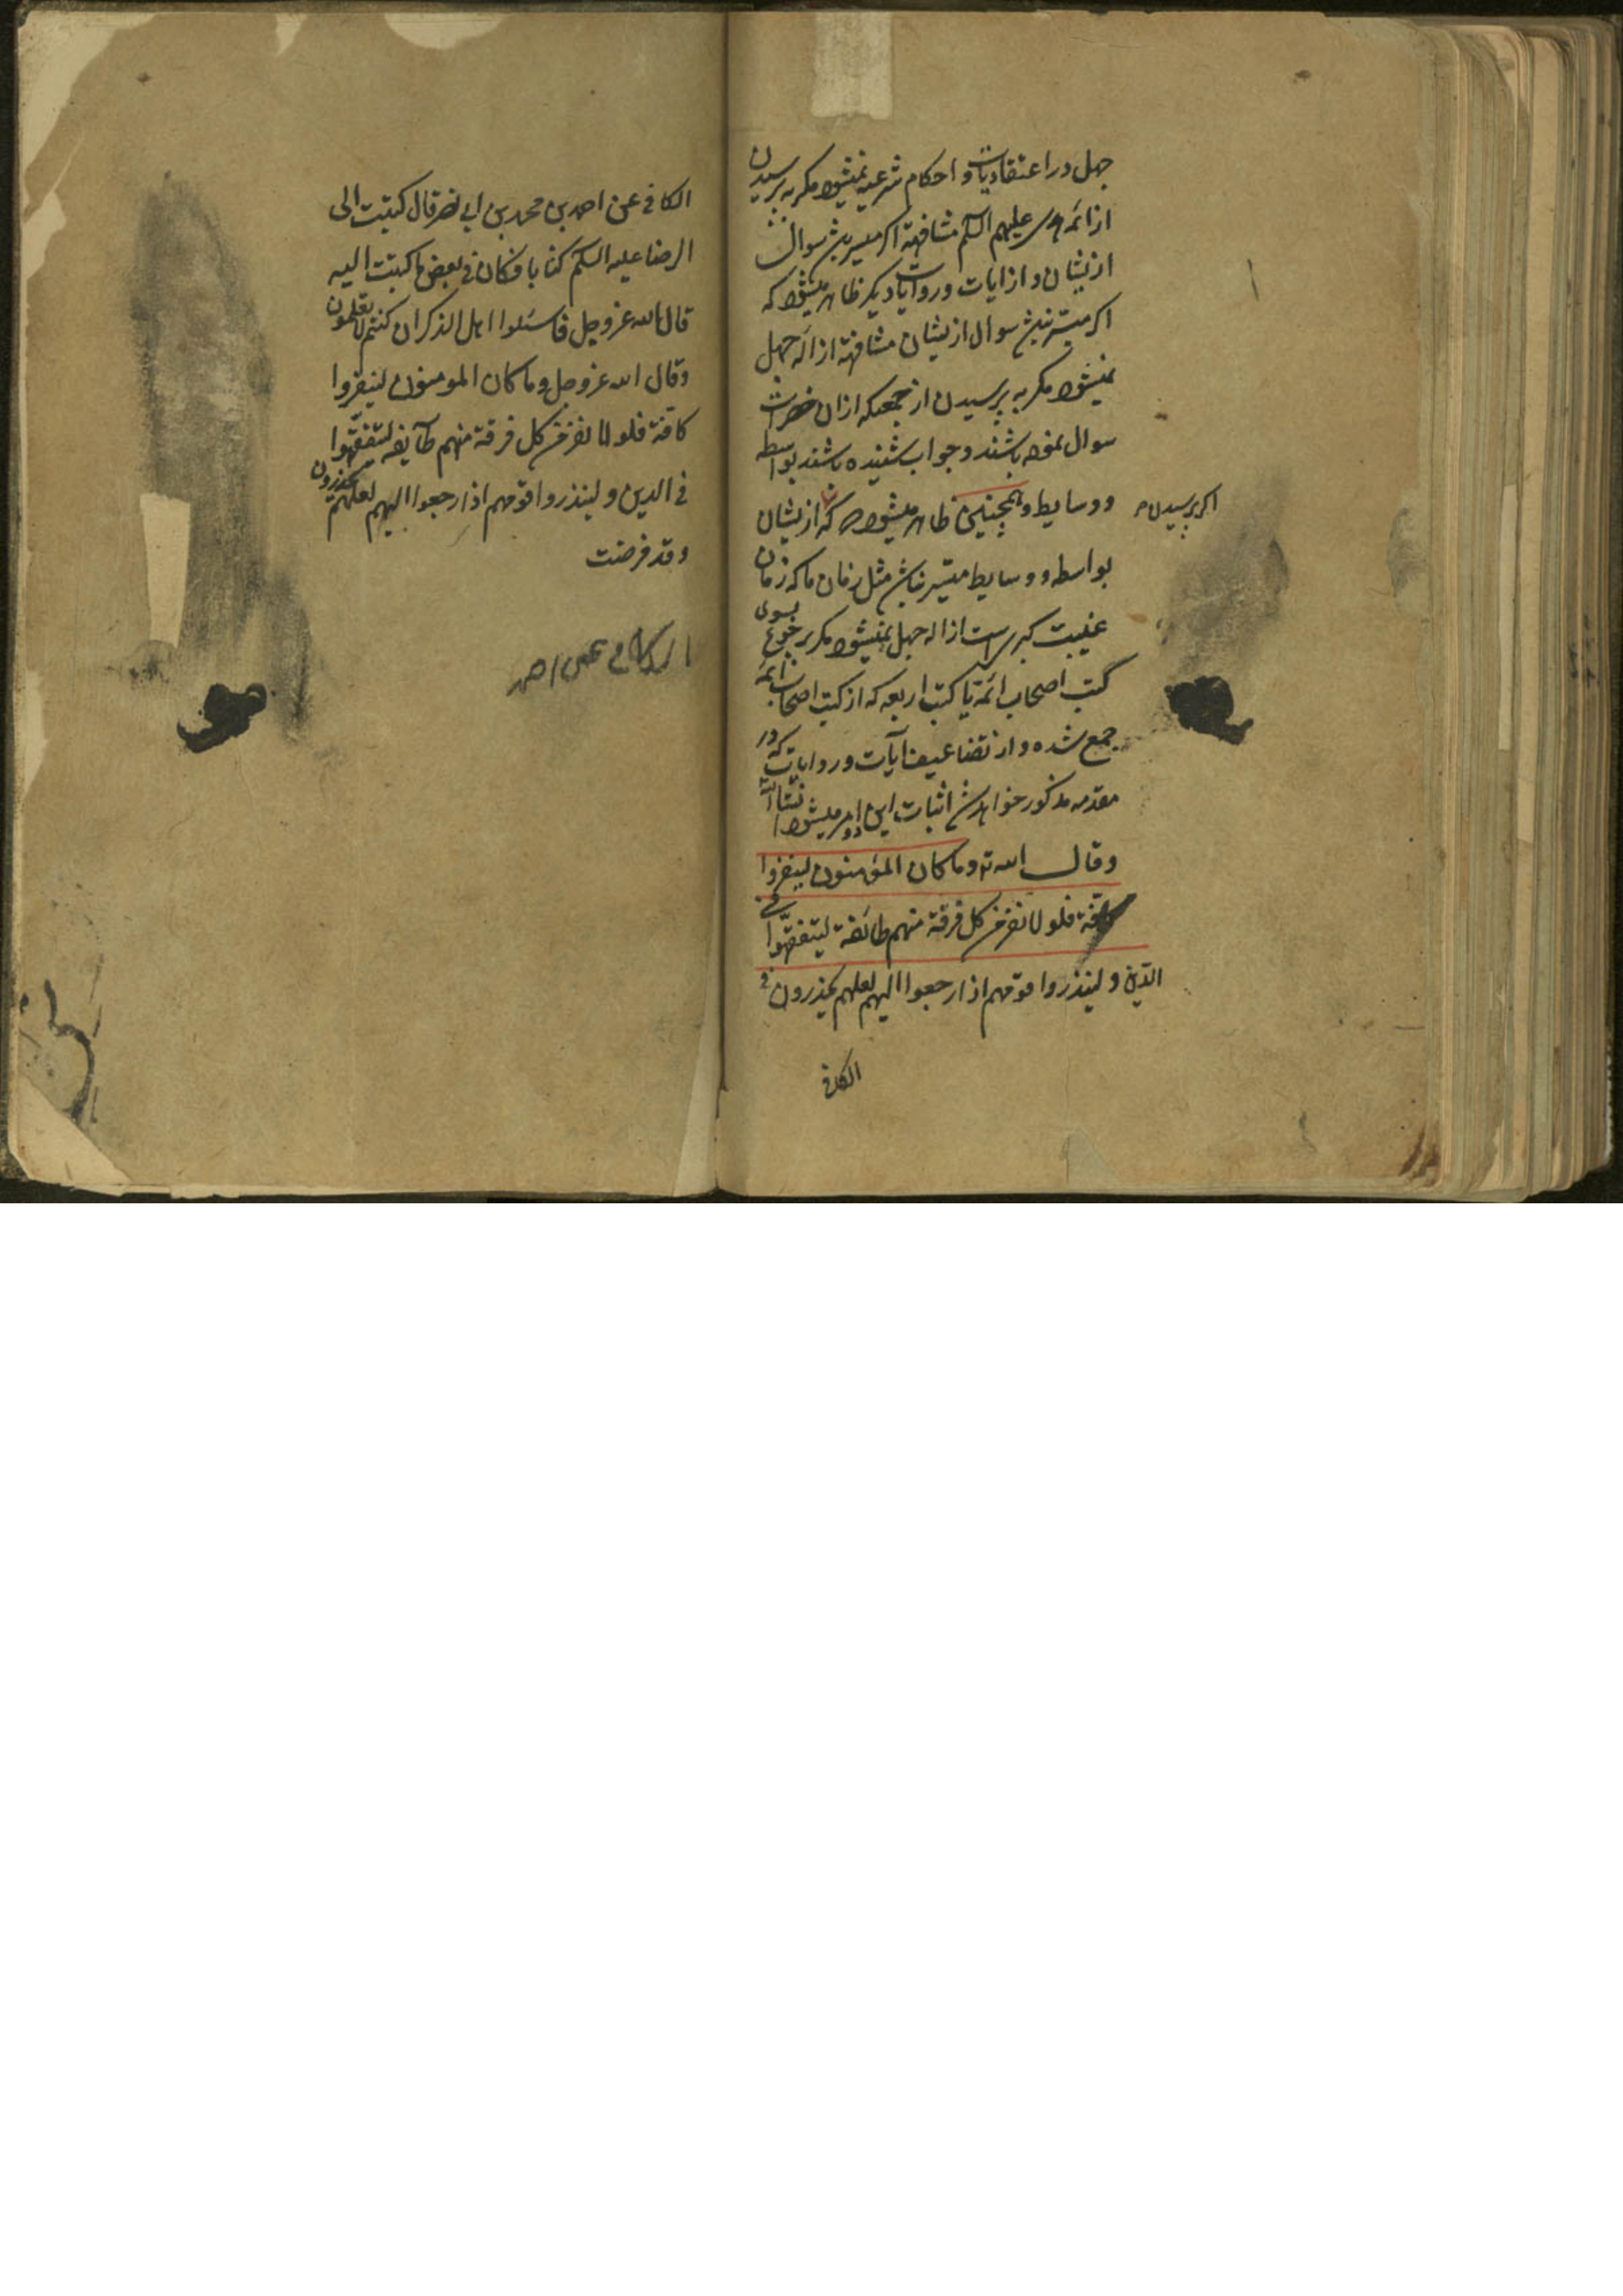 جهل در اعتقادیات و احکام شرعیه نمیشود مکر به پرسیدن
از ائمه هدی علیهم السلم مشافهة اکر میسر باشد سوال
ازیشان و از ایات و روایات دیکر ظاهر میشود که
اکر میسر نباشد سوال ازیشان مشافهة ازاله جهل
نمیشود مکر به پرسیدن از جمعیکه ازان حضرات
سوال نموده باشند و جواب شنیده باشند بواسطه
و وسایط و همچنین ظاهر میشود که ازیشان
اکر پرسیدن
بواسطه و وسایط میسر نباشد مثل زمان ما که زمان
غیبت کبری است ازاله جهل نمیشود مکر برجوع بسوی
کتب اصحاب ائمه یا کتب اربعه که از کتب اصحاب ائمه
جمع شده و از تضاعیف آیات و روایات که در
مقدمه مذکور خواهد شد اثبات این امر میشود انشاالله
وقال الله تع وما کان المؤمنون لینفروا
کافة فلولا نفر من کل فرقة منهم طائفة لیتفقهوا فی
الدین و لینذروا قومهم اذا رجعوا الیهم لعلهم یحذرون
الکافی
الکافی عن احمد بن محمد بن ابی نصر قال کتبت الی
الرضا علیه السلم کتابا فکان فی بعض ما کتبت الیه
قال الله عز وجل فاسئلوا اهل الذکر ان کنتم لا تعلمون
وقال الله عز وجل وما کان المومنون لینفروا
کافة فلولا نفر من کل فرقة منهم طآیفه لیتفقهوا
فی الدین و لینذروا قومهم اذا رجعوا الیهم لعلهم یحذرون
وقد فرضت
الکافی عن احمد